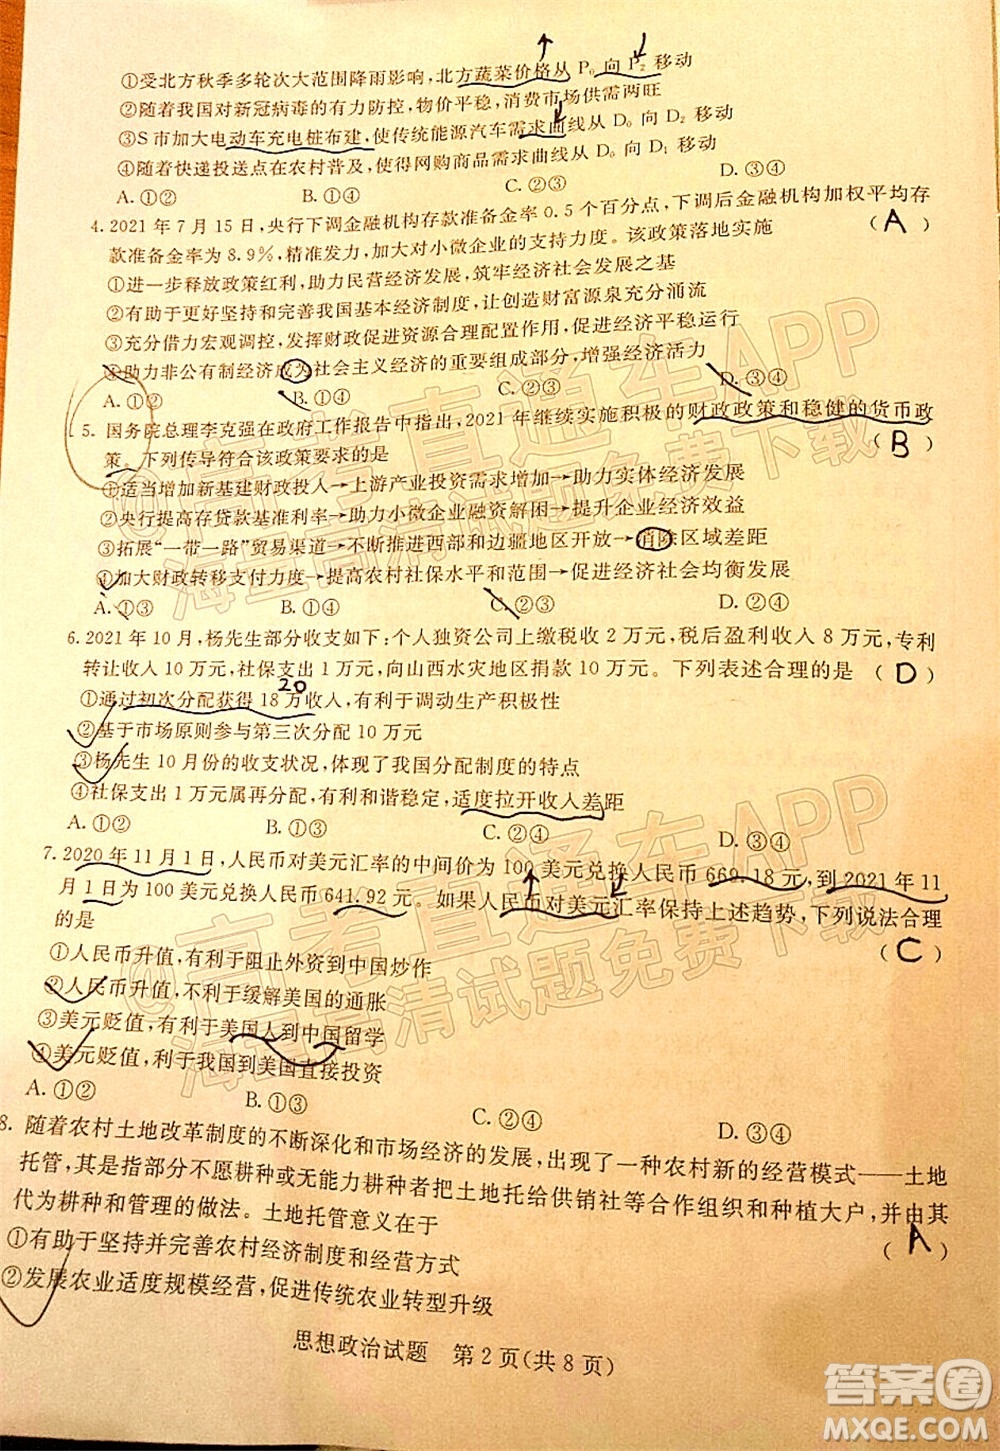 ①受北方秋季多轮次大范围降雨影响，北方蔬菜价格从 P₀ 向 P₂ 移动
②随着我国对新冠病毒的有力防控，物价平稳，消费市场供需两旺
③S市加大电动车充电桩布建，使传统能源汽车需求曲线从 D₀ 向 D₂ 移动
④随着快递投送点在农村普及，使得网购商品需求曲线从 D₀ 向 D₁ 移动
A.①② B.①④ C.②③ D.③④
4.2021年7月15日，央行下调金融机构存款准备金率0.5个百分点，下调后金融机构加权平均存
款准备金率为8.9%，精准发力，加大对小微企业的支持力度。该政策落地实施 （A）
①进一步释放政策红利，助力民营经济发展，筑牢经济社会发展之基
②有助于更好坚持和完善我国基本经济制度，让创造财富源泉充分涌流
③充分借力宏观调控，发挥财政促进资源合理配置作用，促进经济平稳运行
④助力非公有制经济成为社会主义经济的重要组成部分，增强经济活力
A.①② B.①④ C.②③ D.③④
5.国务院总理李克强在政府工作报告中指出，2021年继续实施积极的财政政策和稳健的货币政
策。下列传导符合该政策要求的是 （B）
①适当增加新基建财政投入→上游产业投资需求增加→助力实体经济发展
②央行提高存贷款基准利率→助力小微企业融资解困→提升企业经济效益
③拓展“一带一路”贸易渠道→不断推进西部和边疆地区开放→消除区域差距
④加大财政转移支付力度→提高农村社保水平和范围→促进经济社会均衡发展
A.①③ B.①④ C.②③ D.②④
6.2021年10月，杨先生部分收支如下：个人独资公司上缴税收2万元，税后盈利收入8万元，专利
转让收入10万元，社保支出1万元，向山西水灾地区捐款10万元。下列表述合理的是 （D）
20
①通过初次分配获得18万收入，有利于调动生产积极性
②基于市场原则参与第三次分配10万元
③杨先生10月份的收支状况，体现了我国分配制度的特点
④社保支出1万元属再分配，有利和谐稳定，适度拉开收入差距
A.①② B.①③ C.②④ D.③④
7.2020年11月1日，人民币对美元汇率的中间价为100美元兑换人民币669.18元，到2021年11
月1日为100美元兑换人民币641.92元。如果人民币对美元汇率保持上述趋势，下列说法合理
的是 （C）
①人民币升值，有利于阻止外资到中国炒作
②人民币升值，不利于缓解美国的通胀
③美元贬值，有利于美国人到中国留学
④美元贬值，利于我国到美国直接投资
A.①② B.①③ C.②④ D.③④
8.随着农村土地改革制度的不断深化和市场经济的发展，出现了一种农村新的经营模式——土地
托管，其是指部分不愿耕种或无能力耕种者把土地托给供销社等合作组织和种植大户，并由其
代为耕种和管理的做法。土地托管意义在于 （A）
①有助于坚持并完善农村经济制度和经营方式
②发展农业适度规模经营，促进传统农业转型升级
思想政治试题 第2页(共8页)
@高考直通车APP
海量高清试题免费下载
@高考直通车APP
海量高清试题免费下载
答案圈
MXQE.COM